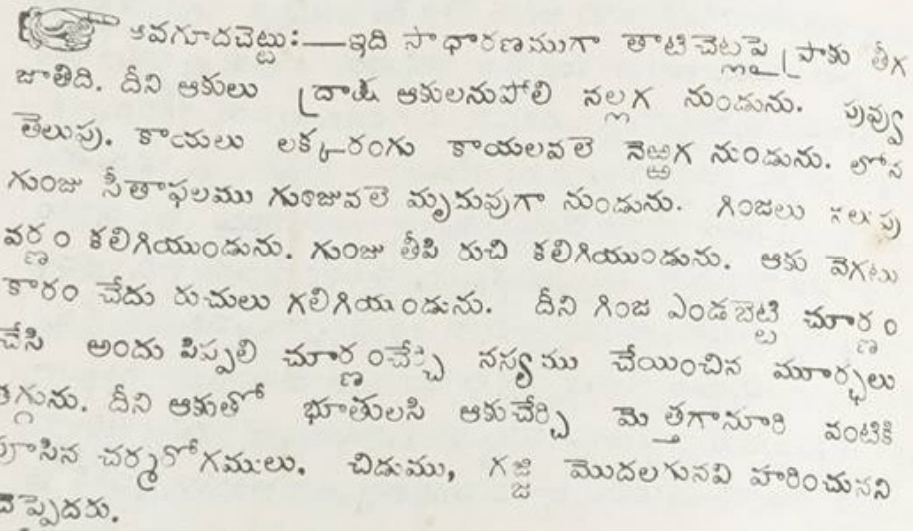 అవగూదచెట్టు:—ఇది సాధారణముగా తాటిచెట్లపై ప్రాకు తీగ
జాతిది. దీని ఆకులు ద్రాక్ష ఆకులనుపోలి నల్లగ నుండును. పువ్వు
తెలుపు. కాయలు లక్కరంగు కాయలవలె నెఱ్ఱగ నుండును. లోన
గుంజు సీతాఫలము గుంజువలె మృదువుగా నుండును. గింజలు నలుపు
వర్ణం కలిగియుండును. గుంజు తీపి రుచి కలిగియుండును. ఆకు వెగటు
కారం చేదు రుచులు గలిగియుండును. దీని గింజ ఎండబెట్టి చూర్ణం
చేసి అందు పిప్పలి చూర్ణంచేర్చి నస్యము చేయించిన మూర్ఛలు
తగ్గును. దీని ఆకుతో భూతులసి ఆకుచేర్చి మెత్తగానూరి వంటికి
పూసిన చర్మరోగములు. చిడుము, గజ్జి మొదలగునవి హరించునని
చెప్పెదరు.